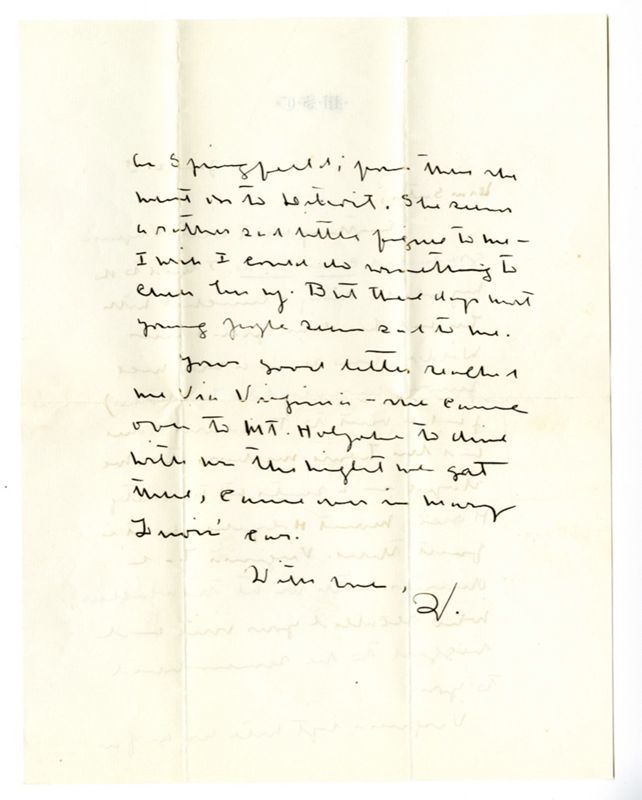 in Springfield; from there she
went on to Detroit. She seems
a rather sad little figure to me –
I wish I could do something to
cheer her up. But these days most
young people seem sad to me.
Your good letter reached
me via Virginia – she came
over to Mt. Holyoke to dine
with us the night we got
there, came over in Mary
car.
With love,
V.